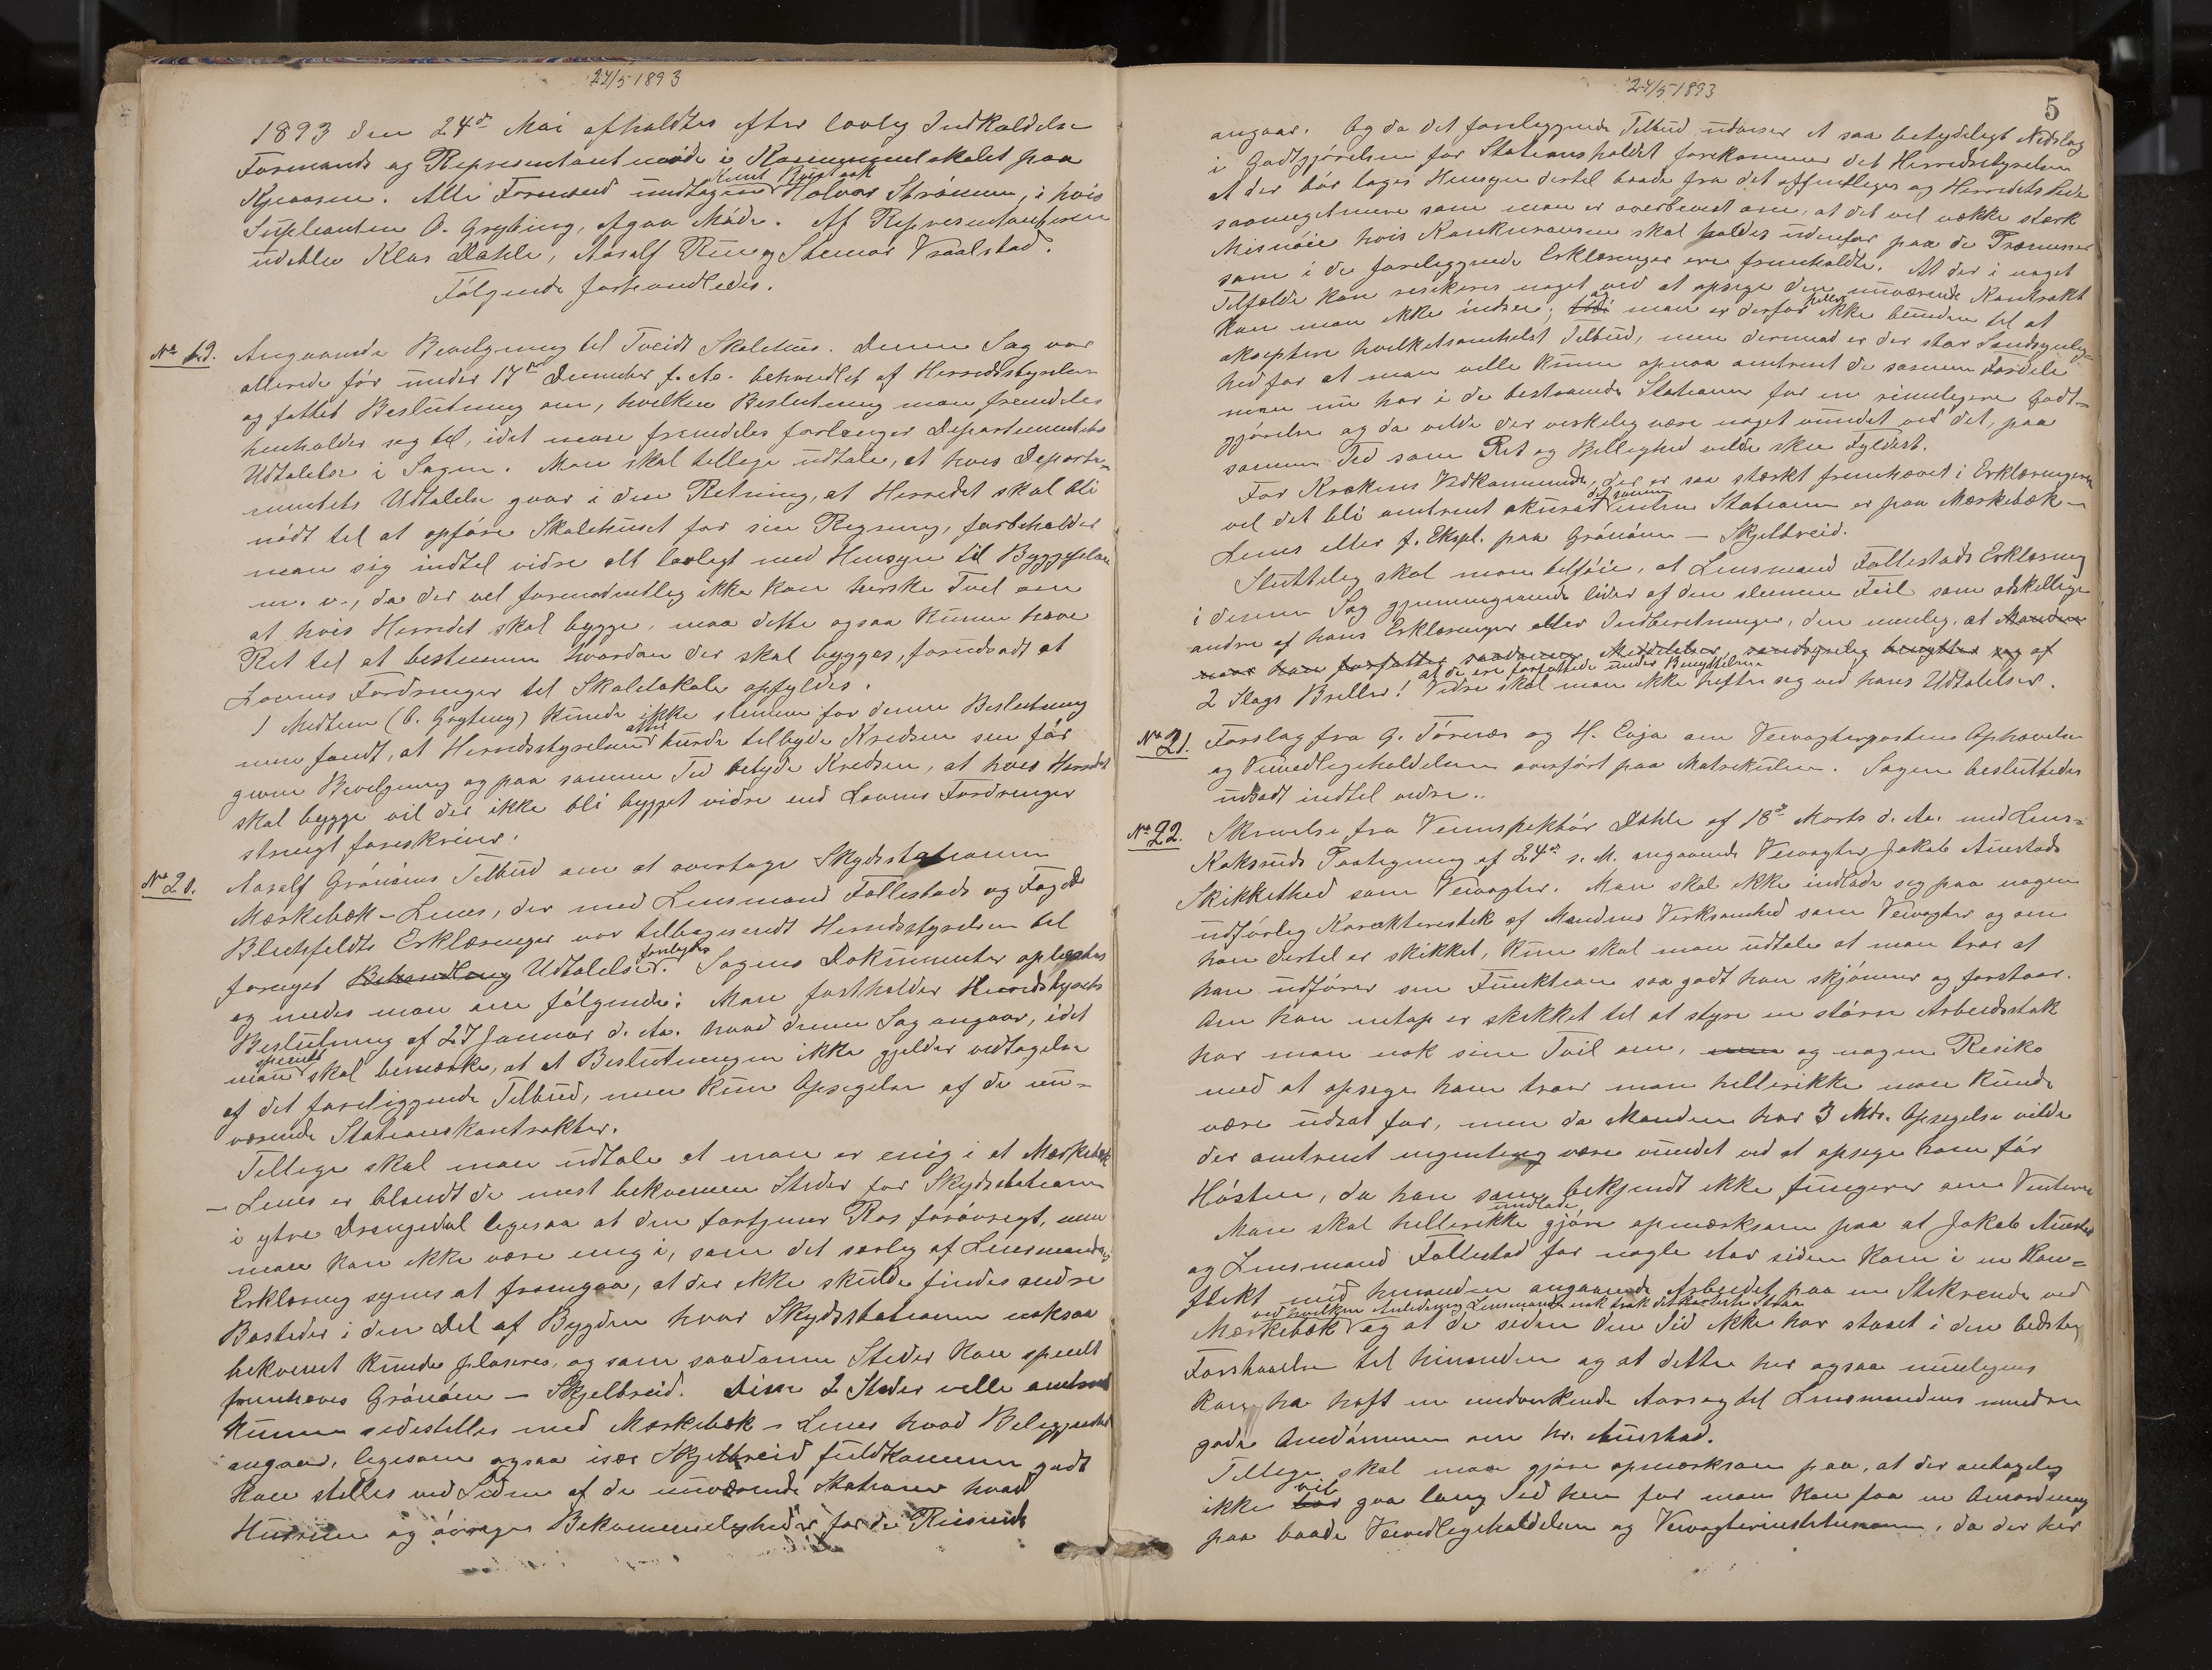 24/5 1893
1893 den 24de Mai afholdtes efter lovlig Indkaldelse
Formands og Representantmøde i Kommunelokalet paa
Kjeaasen. Alle Formænd undtagen Halvor Strømme, i hvis
Supleanten O. Gryting, afgaa Møde. Af Representanterne
udeblev Klas Dahle, Aasalf Ring Steinar Vraalstad.
Følgende forhandledes.
No 19. Angaaende Bevilgning til Tveidt Skolehus. Denne Sag var
allerede før under 17de December f. Aa. behandlet af Herredsstyrelsen
og fattet Beslutning om, hvilken Beslutning man fremdeles
henholder sig til, idet man fremdeles forlanger Departementets
Udtalelse i Sagen. Man skal tillige udtale, at hvis Departe-
mentets Udtalelse gaar i den Retning, at Herredet skal bli
nødt til at opføre Skolehuset for sin Regning, forbeholder
man sig indtil vidre alt lovligt med Hensyn til Byggeplan
m. v., da der vel formodentlig ikke kan herske Tvil om
at hvis Herredet skal bygge, maa dette ogsaa kunne have
Ret til at bestemme hvordan der skal bygges, forudsadt at
Lovens Fordringer til Skolelokale opfyldes.
1 Medlem (O. Gryting) kunde ikke stemme for denne Beslutning
men fandt, at Herredsstyrelsen atter burde tilbyde Kredsen sin før
givne Bevilgning og paa samme Tid betyde Kredsen, at hvis Herredet
skal bygge vil der ikke bli bygget vidre end Lovens Fordringer
strengt foreskriver.
No 20. Aasalf Grønåens Tilbud om at overtage Skydsstationen
Mærkebæk-Lenes, der med Lensmand Fallestads og Foged
Blechfeldts Erklæringer var tilbagesendt Herredsstyrelsen til
fornyet Behandling Udtalelse forelagdes. Sagens Dokumenter oplæstes
og enedes man om følgende: Man fastholder Herredsstyrets
Beslutning af 27 Januar d. Aa. hvad denne Sag angaar, idet
man specielt skal bemærke, at Beslutningen ikke gjelder vedtagelse
af det foreliggende Tilbud, men kun Opsigelse af de nu-
værende Stationskontrakter.
Tillige skal man udtale at man er enig i at Mærkebæk
- Lenes er blandt de mest bekvemme Steder for Skydsstationen
i ytre Drangedal ligesaa at den fortjener Ros forøvrigt, men
man kan ikke være enig i, som det særlig af Lensmandens
Erklæring synes at fremgaa, at der ikke skulde findes andre
Bosteder i den Del af Bygden hvor Skydsstationen noksaa
bekvemt kunde plaseres, og som saadanne Steder kan specielt
fremhæves Grønåen - Skjelbreid. Disse 2 Steder ville omtrent
kunne sidestilles med Mærkebæk - Lenes hvad Beliggenhed
angaar, ligesom ogsaa især Skjelbreid fuldkommen godt
kan stilles ved Siden af de nuværende Stationer hvad
Husrum og øvrige Bekvemmeligheder for de Reisende
24/5 1893
5
angaar. Og da det foreliggende Tilbud udviser et saa betydeligt Nedslag
i Godtgjørelsen for Stationsholdet forekommer det Herredsstyrelsen
at der bør tages Hensyn dertil baade fra det offentliges og Herredets Side
saameget mere som man er overbevist om, at det vil vække stærk
Misnøie hvis Konkurransen skal holdes udenfor paa de Præmisser
som i de foreliggende Erklæringer ere fremholdte. At der i noget
Tilfælde kan resikeres noget ved at opsige den nuværende Kontrakt
kan man ikke indsee, og man er derfor heller ikke bunden til at
akseptere hvilketsomhelst Tilbud, men dermed er der stor Sandsynlig-
hed for at man ville kunne opnaa omtrent de samme Fordele
man nu har i de bestaaende Stationer for en rimeligere Godt-
gjørelse og da vilde der virkelig være noget vundet ved det, paa
samme Tid som Ret og Billighed vilde skee Fyldest.
For Krokens Vedkommende, der er saa stærkt fremhævet i Erklæringerne
vil det bli omtrent akurat det samme enten Stationen er paa Mærkebæk-
Lenes eller f. Ekspl. paa Grønåen - Skjelbreid.
Sluttelig skal man tilføie, at Lensmand Fallestads Erklæring
i denne Sag gjennemgaaende lider af den slemme Feil som adskillige
andre af hans Erklæringer eller Indberetninger, den nemlig, at Manden
naar han forfatter saadanne Meddelelser, sandsynlig benytter sig af
at de ere forfattede under Benyttelsen
2 Slags Briller! Vidre skal man ikke hefte seg ved hans Udtalelser.
No 21. Forslag fra G. Tørnæs og H. Evja om Veivogterpostens Ophævelse
og Veivedligeholdelsen overført paa Matrikulen. Sagen besluttedes
udsadt indtil vidre..
No 22. Skrivelse fra Veiinspektør Dahle af 18de Marts d. Aa. med Lens-
Koksruds Paategning af 24de s. M. angaaende Veivogter Jakob Austads
Skikkethed som Veivogter. Man skal ikke indlade sig paa nogen
udførlig Karakteristik af Mandens Virksomhed som Veivogter og om
han dertil er skikket, kun skal man udtale at man tror at
han udfører sin Funktion saa godt han skjønner og forstaar.
Om han netop er skikket til at styre en større Arbeidsstok
har man nok sine Tvil om, men og nogen Resiko
med at opsige ham tror man hellerikke man kunde
være udsat for, men da Manden har 3 Mdr. Opsigelse vilde
der omtrent ingenting være vundet ved at opsige ham før
Høsten, da han som bekjendt ikke fungerer om Vinteren
Man skal hellerikke undlade gjøre opmærksom paa at Jakob Austad
og Lensmand Fallestad for nogle Aar siden kom i en Kon-
flikt med hinanden angaaende Arbeidet paa en Stikrende ved
Mærkebæk ved hvilken Anledning Lensmanden nok trak det korteste Straa og at de siden den Tid ikke har staaet i den bedste
Forstaaelse til hinanden og at dette her ogsaa muligens
kan ha haft en medvirkende Aarsag til Lensmandens mindre
gode Omdømme om hr. Austad.
Tillige skal man gjøre opmærksom paa, at der antagelig
ikke vil gaa lang Tid hen før man kan faa en Omordning
paa baade Veivedligeholdelsen og Veivogterinstitutionen, da der her